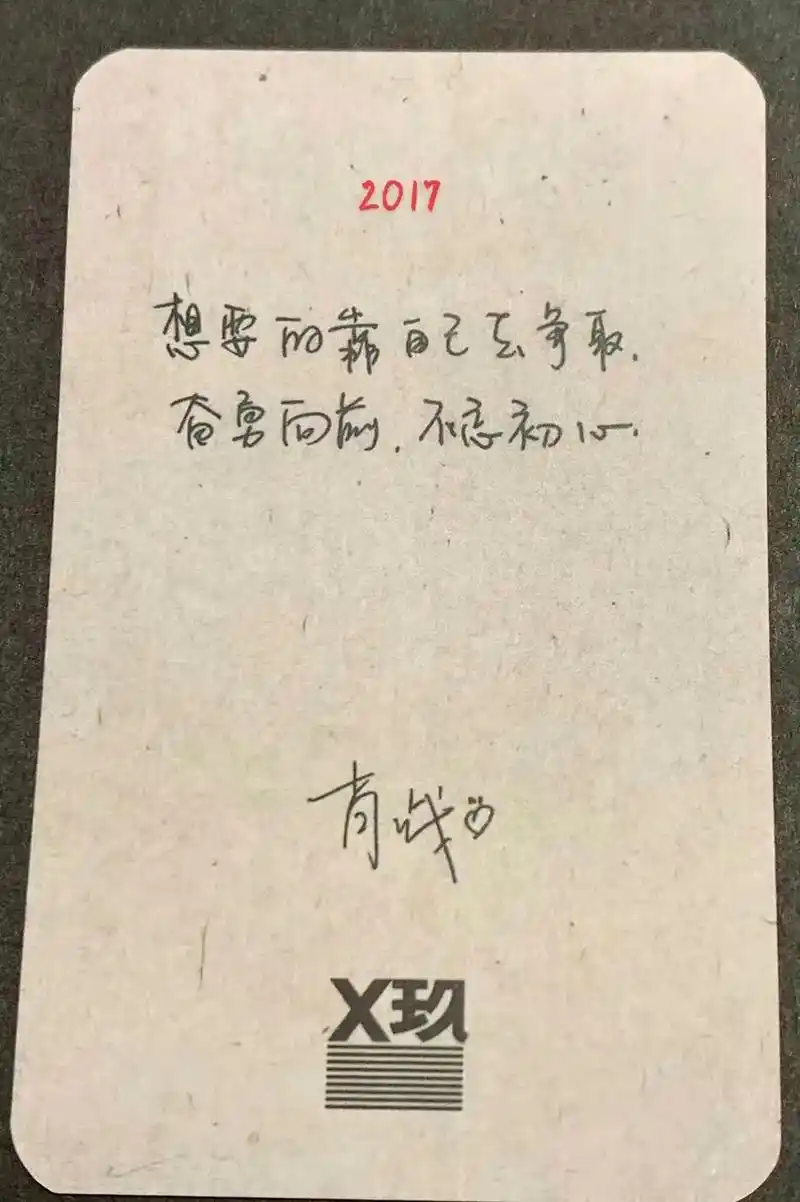 2017
想要的靠自己去争取.
奋勇向前.不忘初心.
X玖